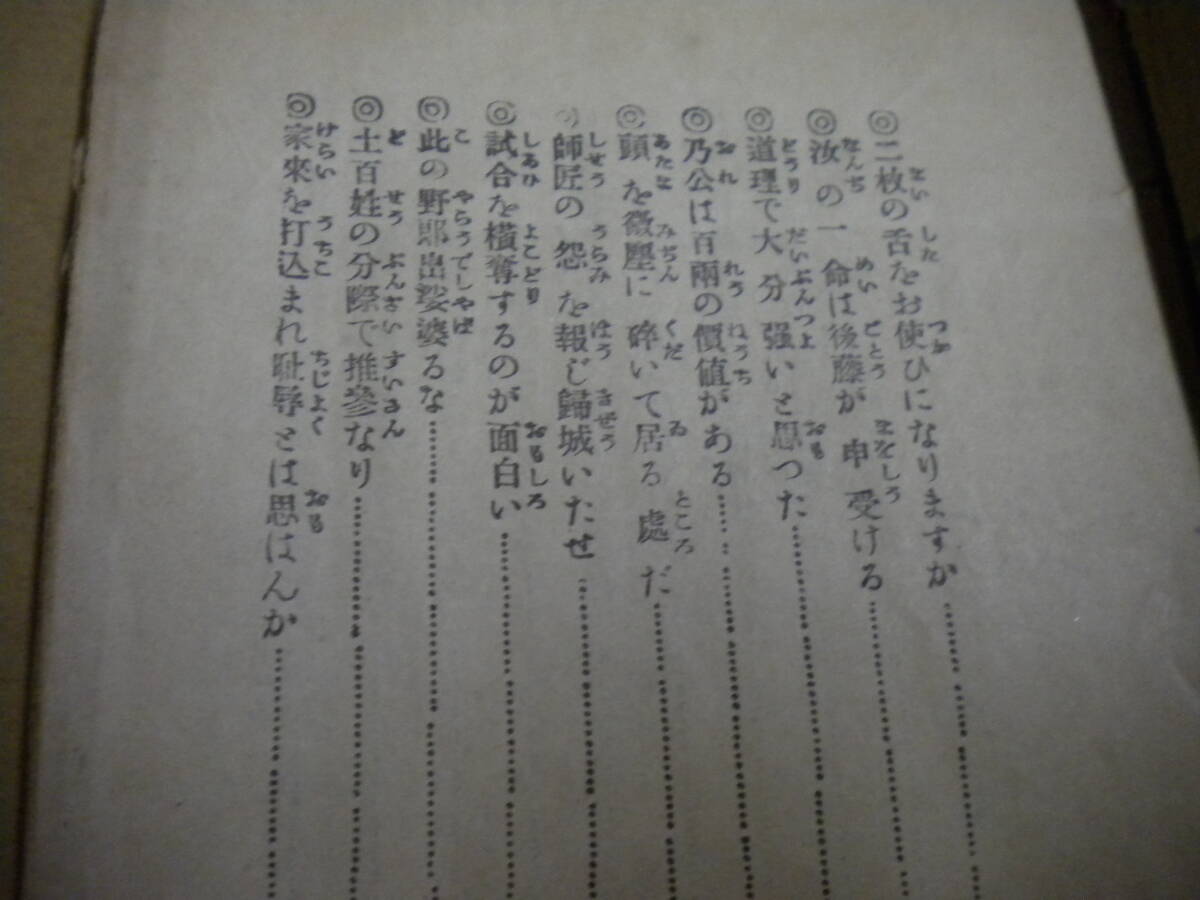 ◎二枚の舌をお使ひになりますか
◎汝の一命は後藤が申受ける
◎道理で大分强いと思つた
◎乃公は百兩の價値がある
◎頭を微塵に碎いて居ろ處だ
◎師匠の怨を報じ歸城いたせ
◎試合を橫奪するのが面白い
◎此の野郞出娑婆るな
◎土百姓の分際で推參なり
◎家來を打込まれ恥辱とは思はんか